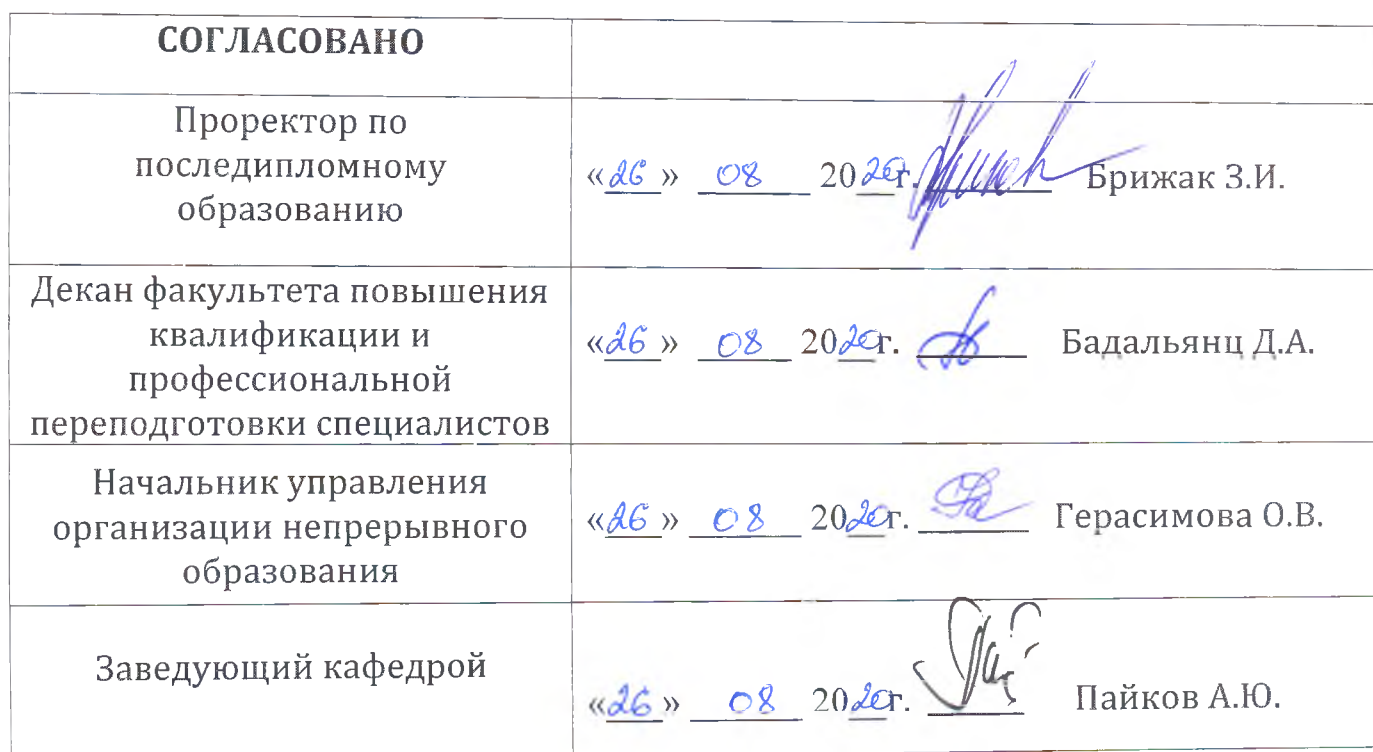 СОГЛАСОВАНО
Проректор по
последипломному
образованию
«26» 08 2020г. Брижак З.И.
Декан факультета повышения
квалификации и
профессиональной
переподготовки специалистов
«26» 08 2020г. Бадальянц Д.А.
Начальник управления
организации непрерывного
образования
«26» 08 2020г. Герасимова О.В.
Заведующий кафедрой
«26» 08 2020г. Пайков А.Ю.